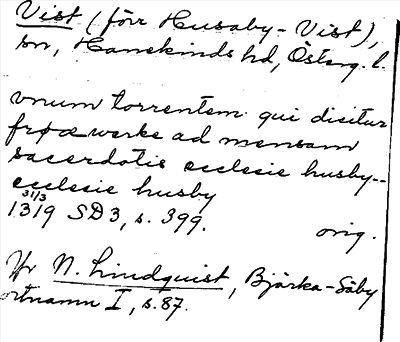 Vist (förr Husaby-Vist),
sn, Hanekinds hd, Österg. l.
vnum torrentem qui dicitur
frøæ werke ad mensam
sacerdotis ecclesie husby--
ecclesie husby
31/3
1319 SD3, s. 399. orig.
Jfr N. Lindquist, Bjärka-Säby
ortnamn I, s. 87.